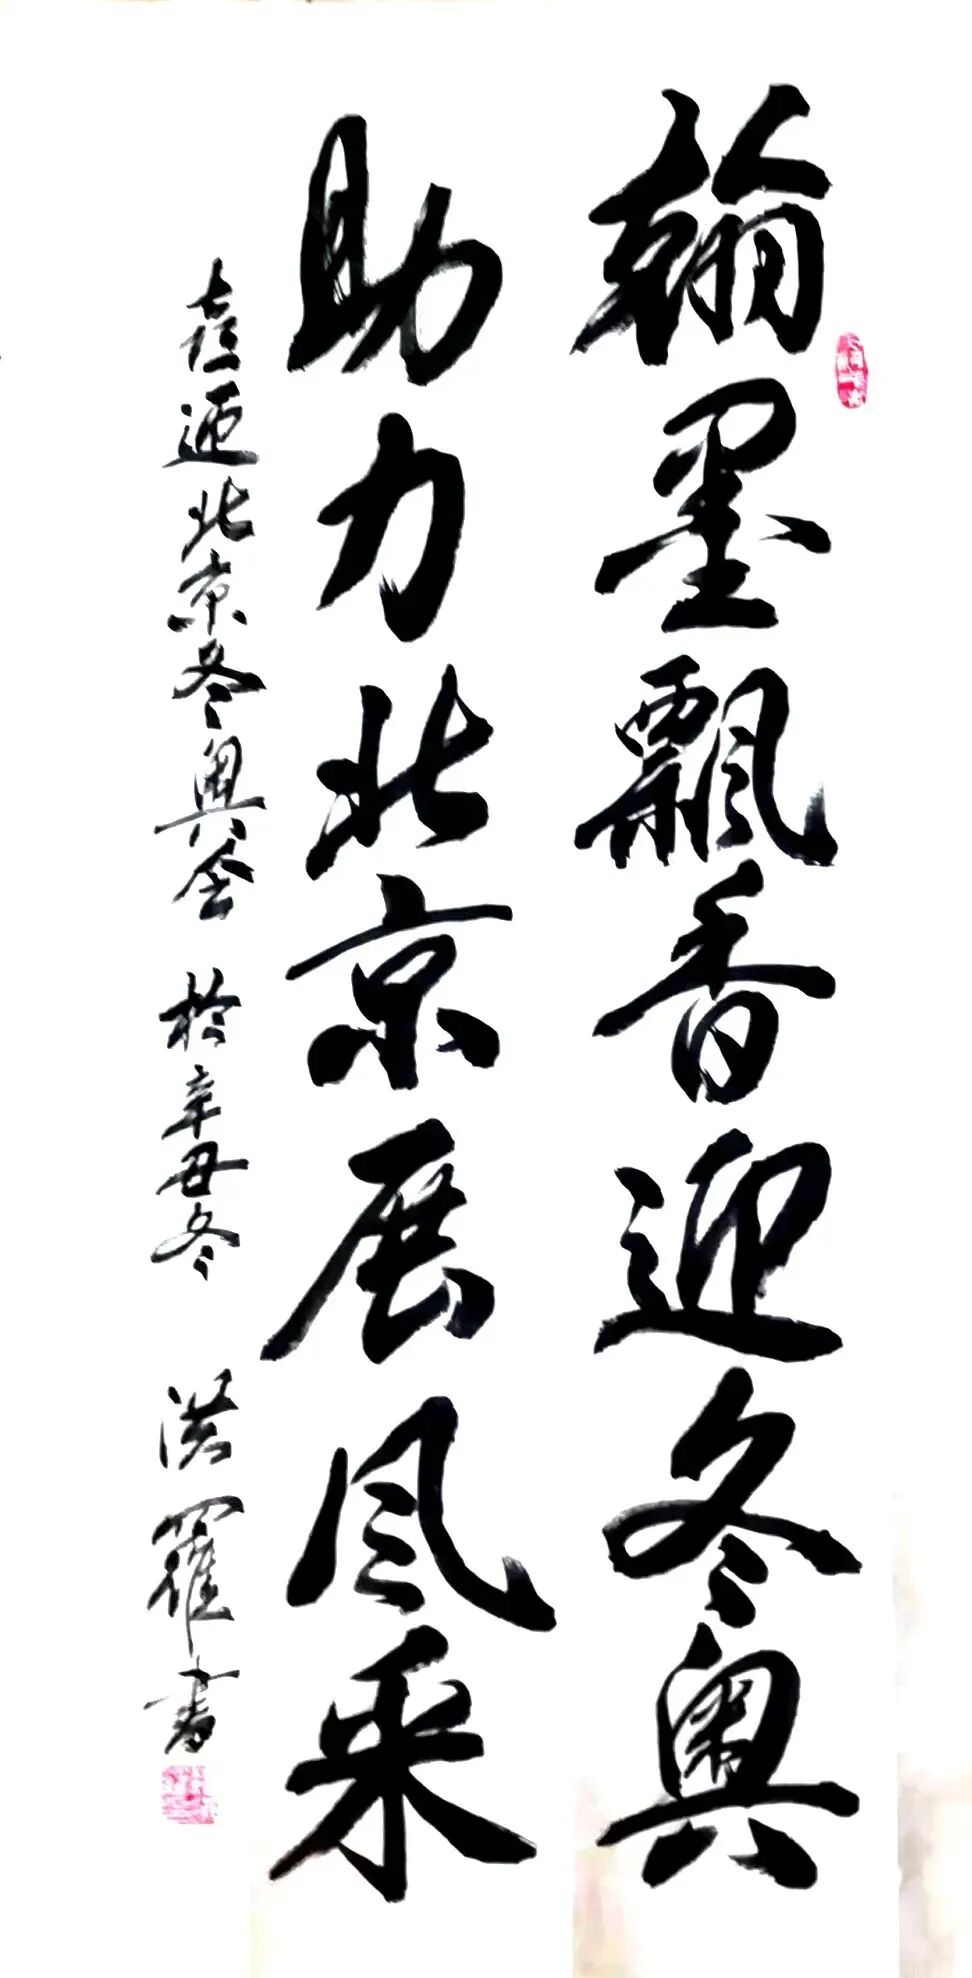 翰墨飘香迎冬奥
助力北京展风采
喜迎北京冬奥会 於辛丑冬 洪羅書